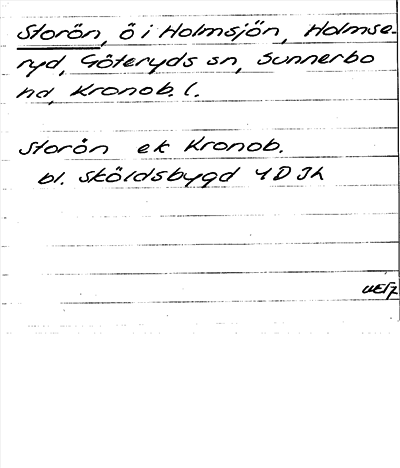 Storön, ö i Holmsjön, Holmse-
ryd, Göteryds sn, Sunnerbo
hd, Kronob. l.
Storön ek Kronob.
bl. Sköldsbygd 4D Jh